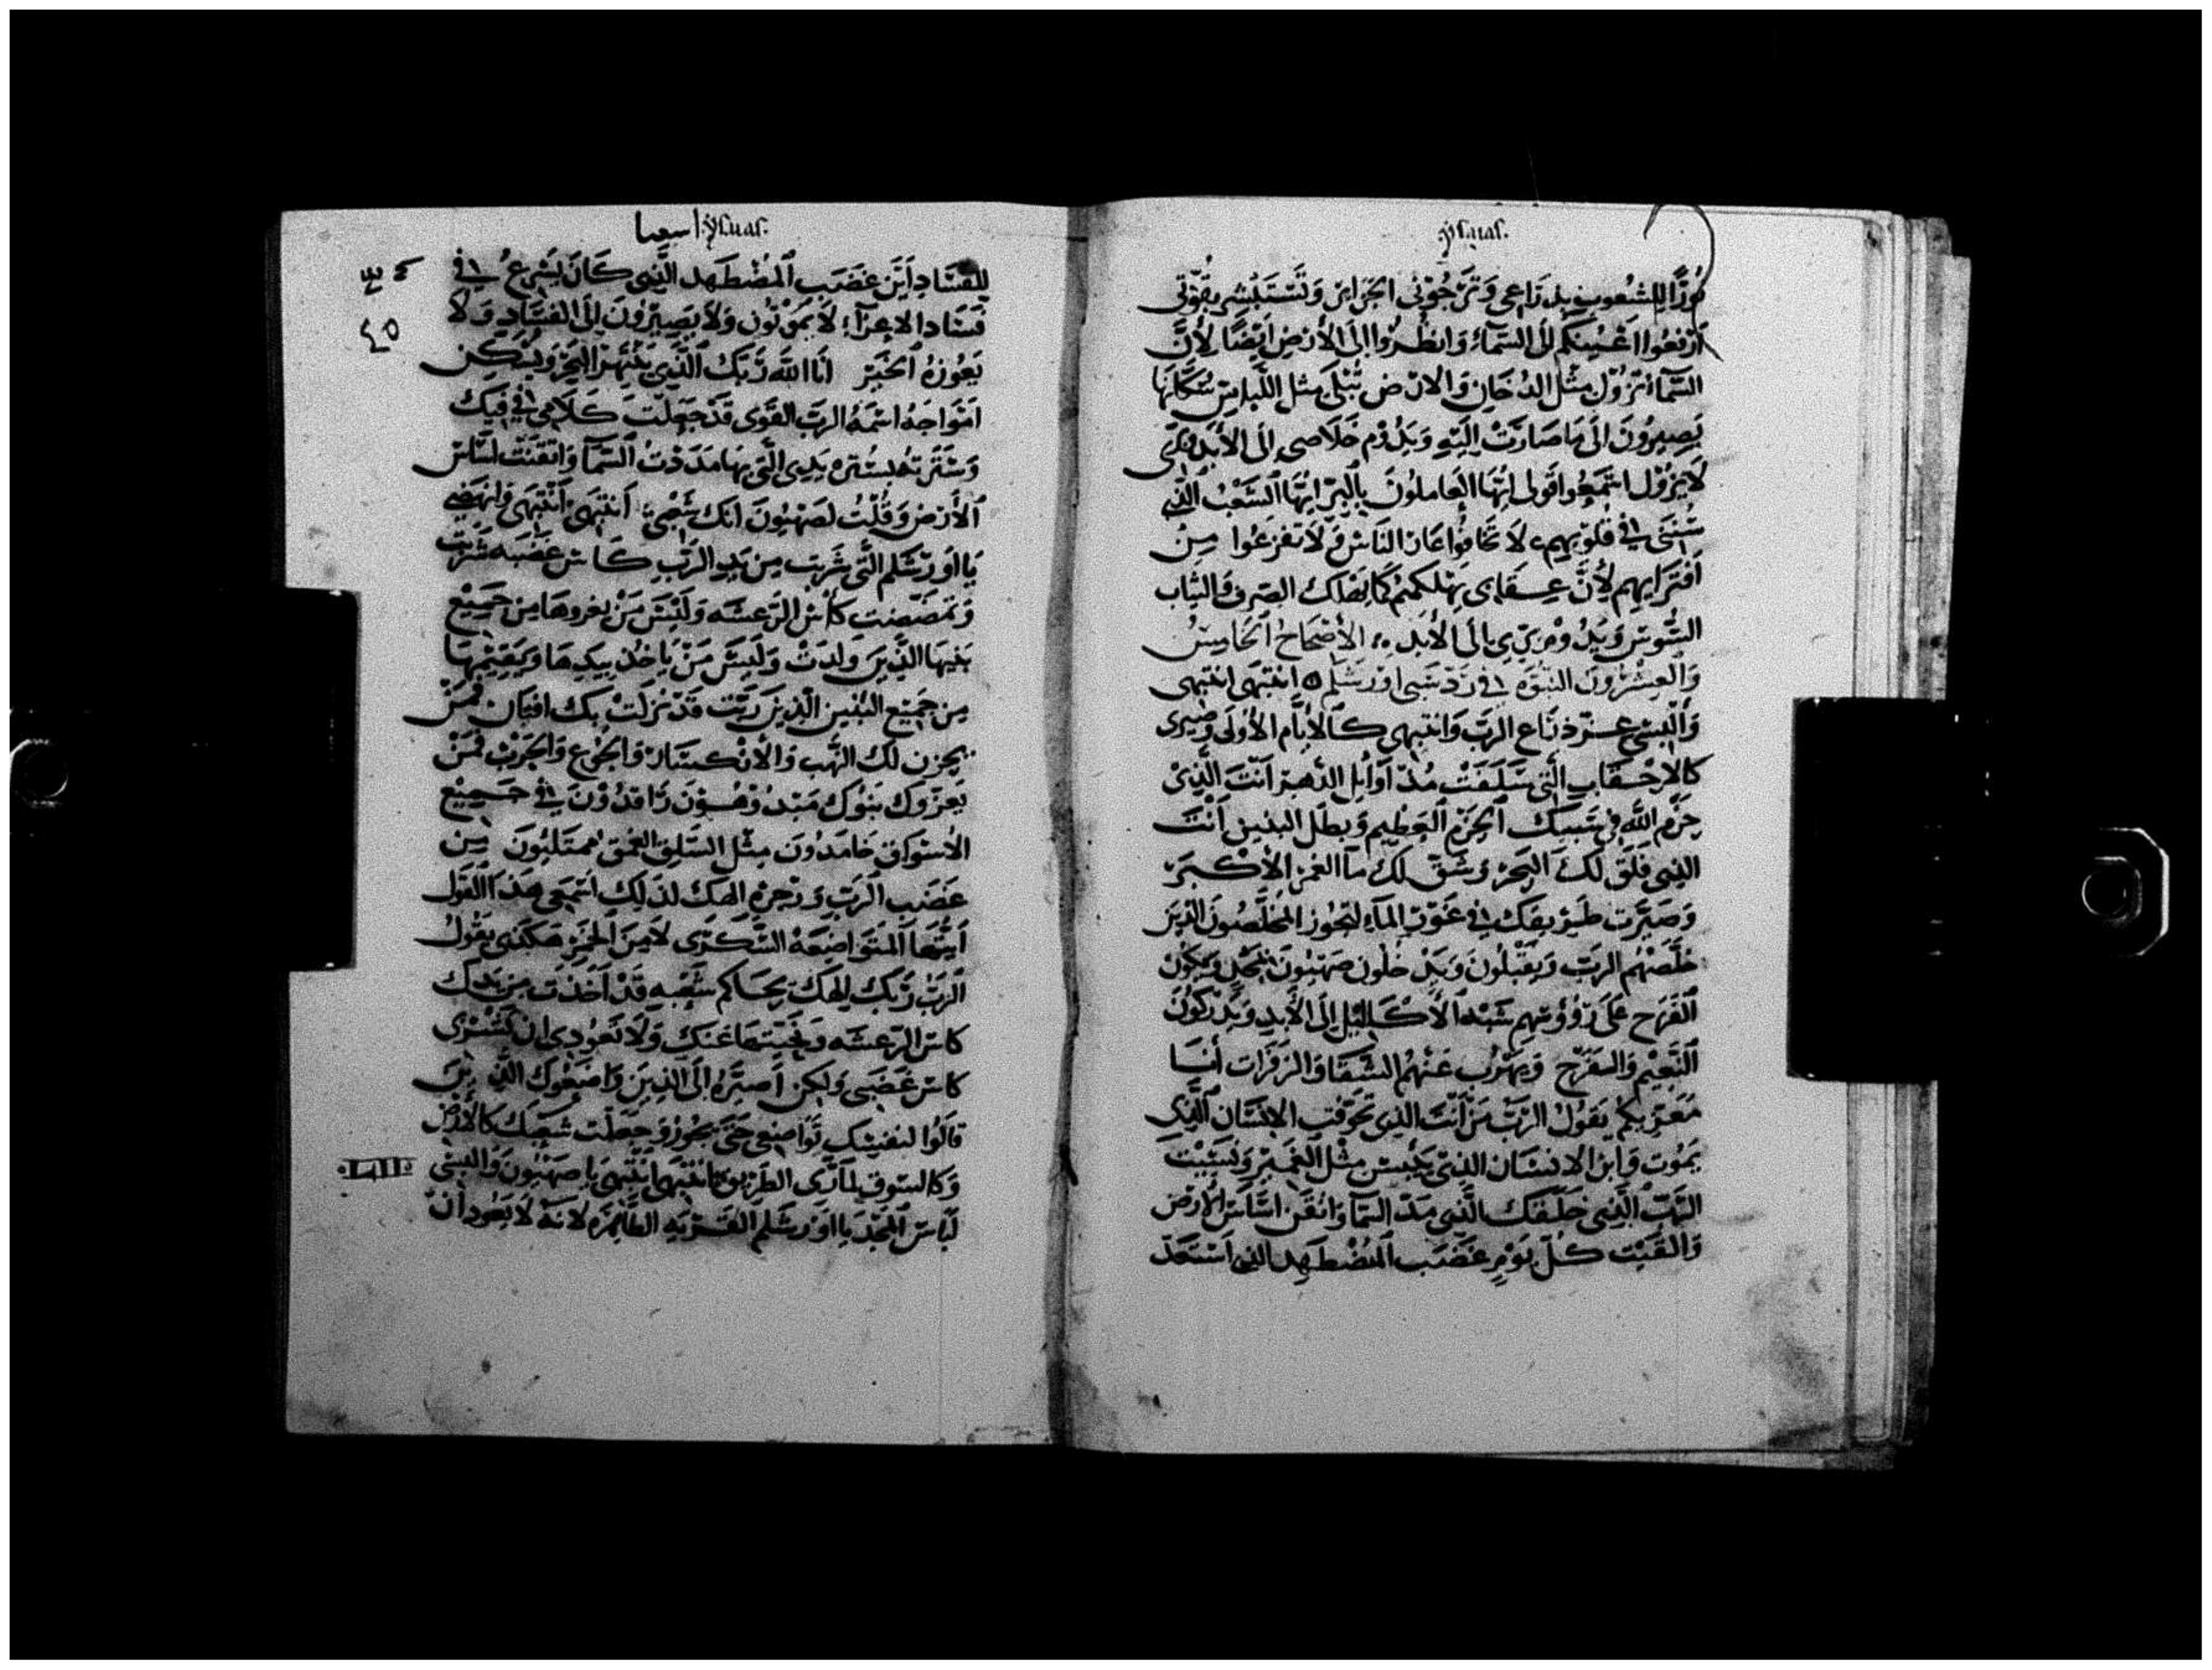 ysaias.
نورًا للشعوب بذراعي وترجوني الجزاير وتستبشر بقوتي
ارفعوا اعينكم الى السماء وانظروا الى الارض ايضًا لأن
السما تزول مثل الدخان والارض تبلى مثل اللباس سكانها
يصيرون الى ما صارت اليه ويدوم خلاصي الى الأبد وبري
لا يزول اسمعوا قولي ايها العاملون بالبر ايها الشعب الذي
سنتي في قلوبهم لا تخافوا عار الناس ولا تفزعوا من
افترايهم لأن عسقاى يهلكهم كما يهلك الصوف والثياب
السوس ويدوم بري الى الأبد الأصحاح الخامس
والعشرون النبوه في رد سبي اورشلم انتبهى انتبهى
والبسي عز ذراع الرب وانتبهى كالأيام الأولى وصيري
كالاحقاب التي سلفت منذ اوايل الدهر انت الذي
حزم الله في سبيك الحزم العظيم وبطل التنين انت
الذي فلق لك البحر وشق لك ما الغمر الأكبر
وصيرت طريقك في غور الماء لتجوز المخلصون الذين
خلصهم الرب ويقبلون ويدخلون صهيون بمجد ويكون
الفرح على رؤوسهم شبه الأكاليل إلى الأبد ويدركون
النعيم والفرح ويهرب عنهم الشقا والزفرات أنا
معزيكم يقول الرب من أنت الذي تخوفت الإنسان الذي
يموت وابن الانسان الذي ييبس مثل العمير ونسيت
الرب الذي خلقك الذي مد السما واتقن اساس الارض
والقيت كل يوم غضب المضطهد الذي استعد
ysaias. اسعيا
للفساد اين غضب المضطهد الذي كان يسرع في
فساد الاعزآء لا يموتون ولا يصيرون الى الفساد ولا
يعوزه الخبز انا الله ربك الذي ينهر البحر ويسكن
امواجه اسمه الرب القوى قد جعلت كلامي في فيك
وسترته بستره يدي التي بها مددت السما واتقنت اساس
الأرض وقلت لصهيون انك شعبي انتبهى انتبهى وانهضي
يا اورشلم التي شربت من يد الرب كاس غضبه شربت
وتمصصت كأس الرعشه وليس من يعزوها من جميع
بنيها الذين ولدت وليس من ياخذ بيدها ويقيمها
من جميع البنين الذين ربت قد نزلت بك افتان فمن
يحزن لك النهب والانكسار والجوع والحرب فمن
يعزوك بنوك مبددون راقدون في جميع
الأسواق خامدون مثل السلق العفق ممتليون من
غضب الرب وزجره الهك لذلك اسمعي هذا القول
ايتها المتواضعة السكرى لا من الخمر هكذى يقول
الرب ربك الهك يحاكم شعبه قد اخذت من يدك
كاس الرعشه ونحيتها عنك ولا تعودي ان تشربى
كاس غضبى ولكن اصيره الى الذين واضعوك الذين
قالوا لنفسك تواضعي حتى نجوز وجعلت شعبك كالأرض
وكالسوق لمارى الطريق انتبهى انتبهى يا صهيون والبسي
لباس المجد يا اورشلم القريه الطاهره لأنه لا يعود ان
٤٥